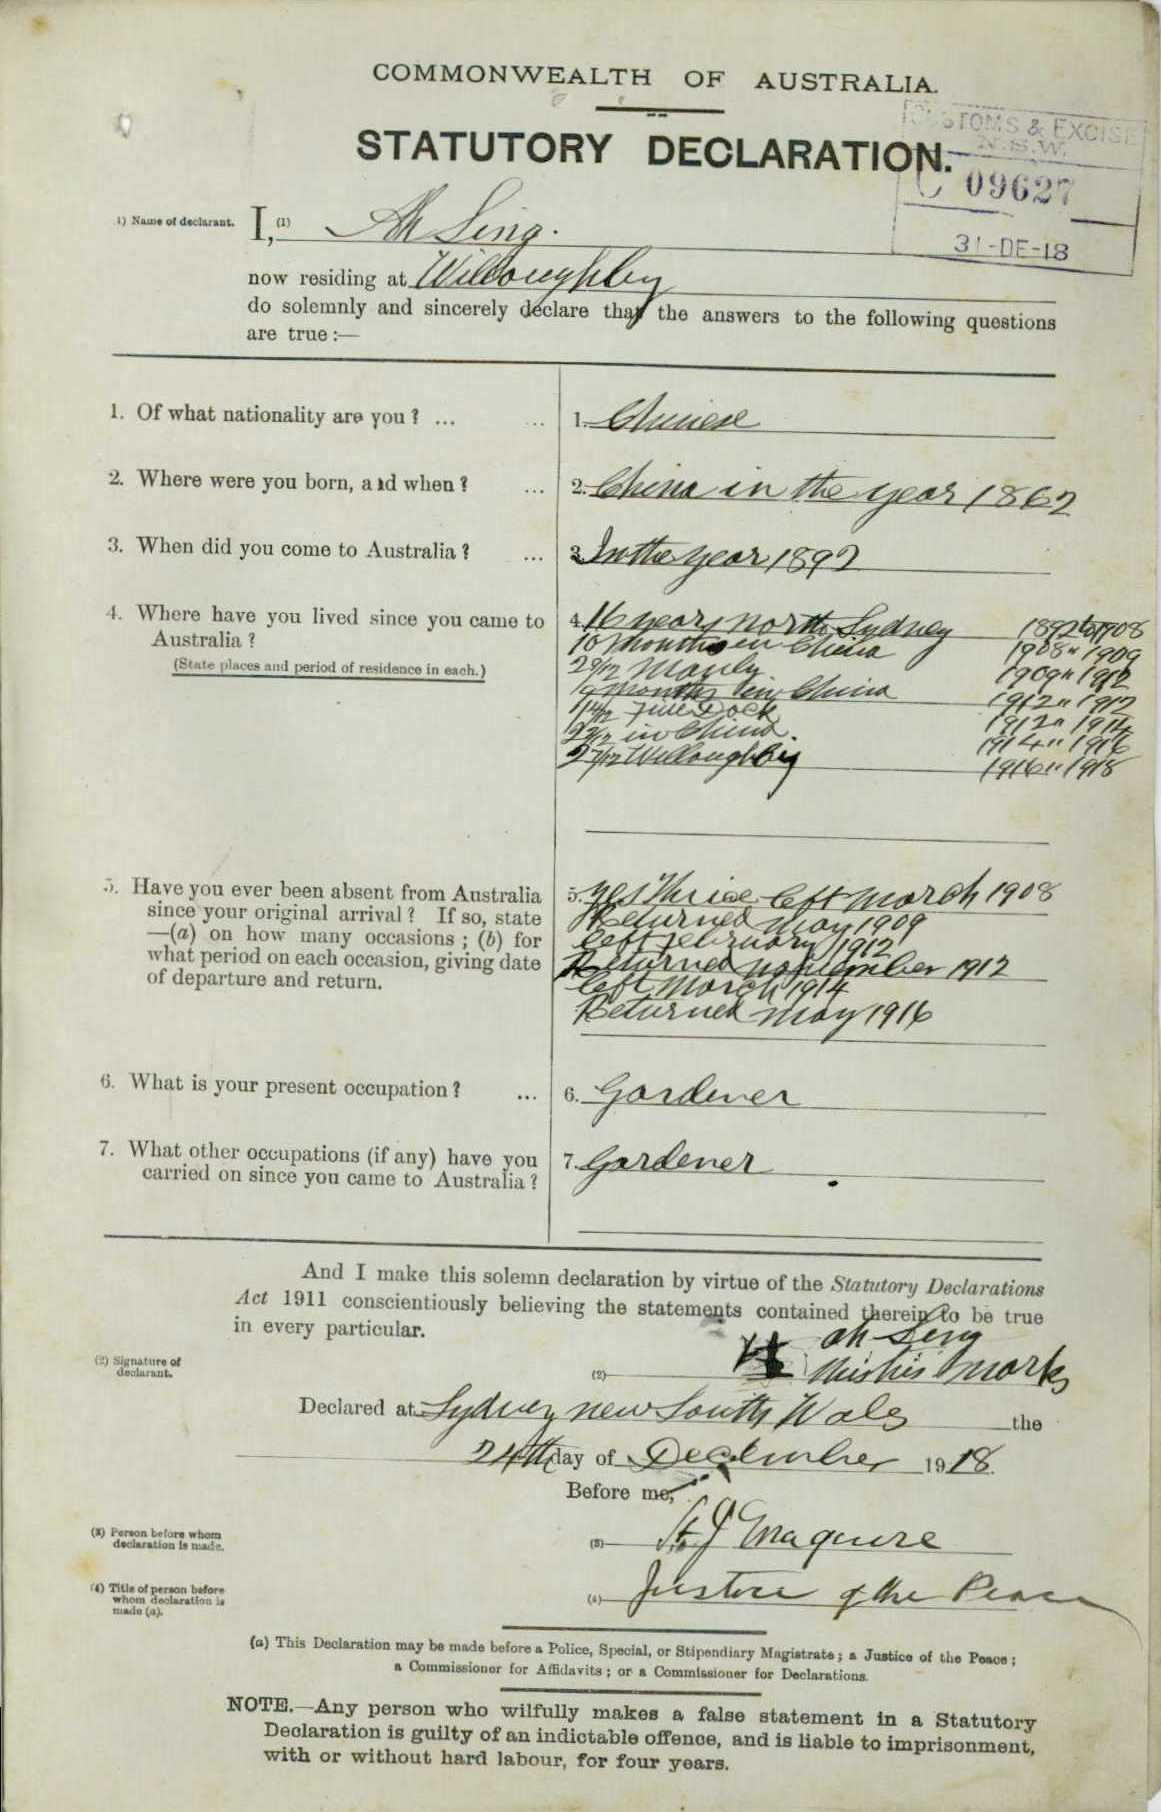 COMMONWEALTH OF AUSTRALIA.
STATUTORY DECLARATION.
CUSTOMS & EXCISE
N.S.W.
C 09627
31-DE-18
1) Name of declarant. I, (1) Ah Sing.
now residing at Willoughby
do solemnly and sincerely declare that the answers to the following questions
are true:—
1. Of what nationality are you? ... ... 1. Chinese
2. Where were you born, and when? ... 2. China in the year 1862
3. When did you come to Australia? ... 3 In the year 1892
4. Where have you lived since you came to
Australia?
(State places and period of residence in each.)
4. 16 years North Sydney 1892 to 1908
10 months in China 1908 " 1909
2 9/12 Manly 1909 " 1912
9 months in China 1912 " 1912
Five Dock 1912 " 1914
in China. 1914 " 1916
2 7/12 Willoughby 1916 " 1918
5. Have you ever been absent from Australia
since your original arrival? If so, state
—(a) on how many occasions; (b) for
what period on each occasion, giving date
of departure and return.
5. yes Thrice left March 1908
Returned May 1909
left February 1912
Returned November 1912
left March 1914
Returned May 1916
6. What is your present occupation? ... 6. Gardener
7. What other occupations (if any) have you
carried on since you came to Australia?
7. Gardener
And I make this solemn declaration by virtue of the Statutory Declarations
Act 1911 conscientiously believing the statements contained therein to be true
in every particular.
ah Sing
(2) Signature of
declarant.
(2) his marks
Declared at Sydney New South Wales the
24th day of December 1918.
Before me,
(3) Person before whom
declaration is made.
(3) Maguire
(4) Title of person before
whom declaration is
made (a).
(4) Justice of the Peace
(a) This Declaration may be made before a Police, Special, or Stipendiary Magistrate; a Justice of the Peace;
a Commissioner for Affidavits; or a Commissioner for Declarations.
NOTE.—Any person who wilfully makes a false statement in a Statutory
Declaration is guilty of an indictable offence, and is liable to imprisonment,
with or without hard labour, for four years.